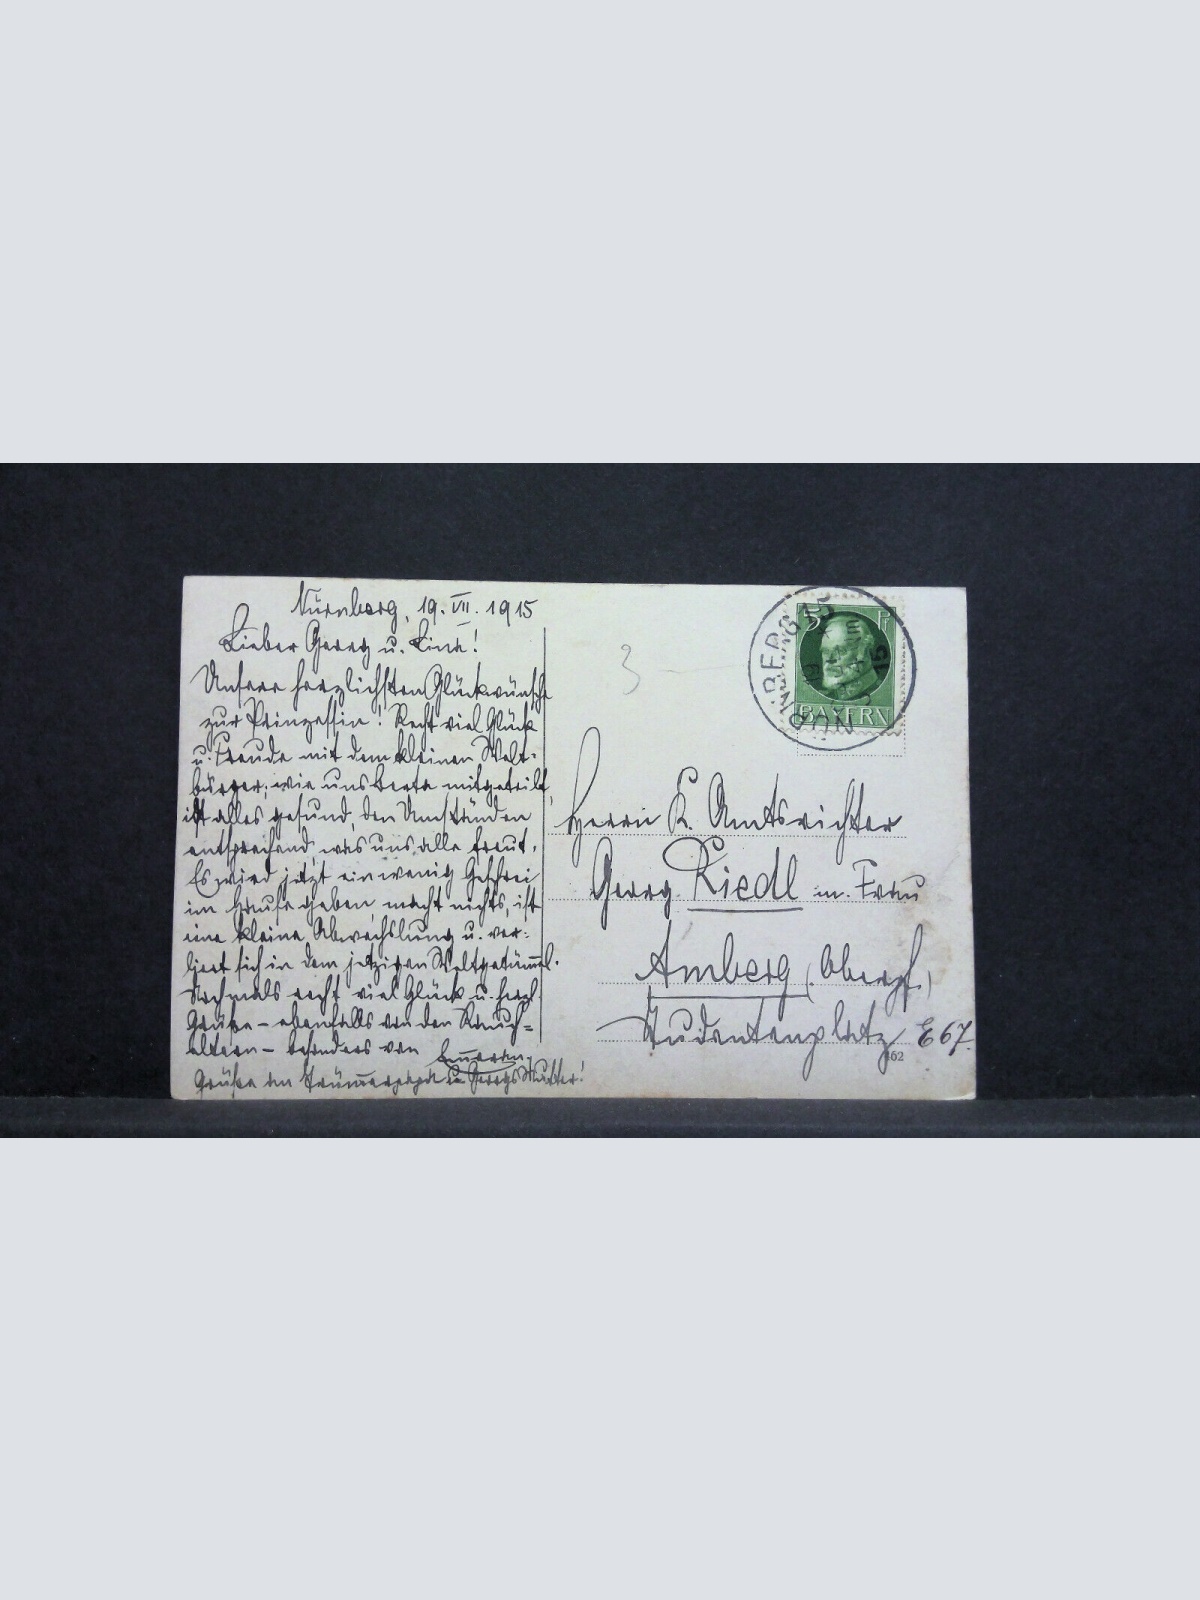 Nürnberg, 19. VII. 1915
Lieber Georg u. Lina!
Unsere herzlichsten Glückwünsche
zur Prinzessin! Recht viel Glück
u. Freude mit dem kleinen Welt-
bürger; wie uns Berta mitgeteilt,
ist alles gesund, den Umständen
entsprechend, was uns alle freut.
Es wird jetzt ein wenig Geschrei
im Hause geben, macht nichts, ist
eine kleine Abwechslung u. ver-
liert sich in dem jetzigen Weltgetümmel.
Nochmals recht viel Glück u. herzl.
Grüße – ebenfalls von den
eltern – besonders von
Grüße an u. Georgs Mutter!
3
NÜRNBERG 15
5 PF
BAYERN
Herrn K. Amtsrichter
Georg Riedl m. Frau
Amberg (Oberpf.)
Studentenplatz E 67.
462